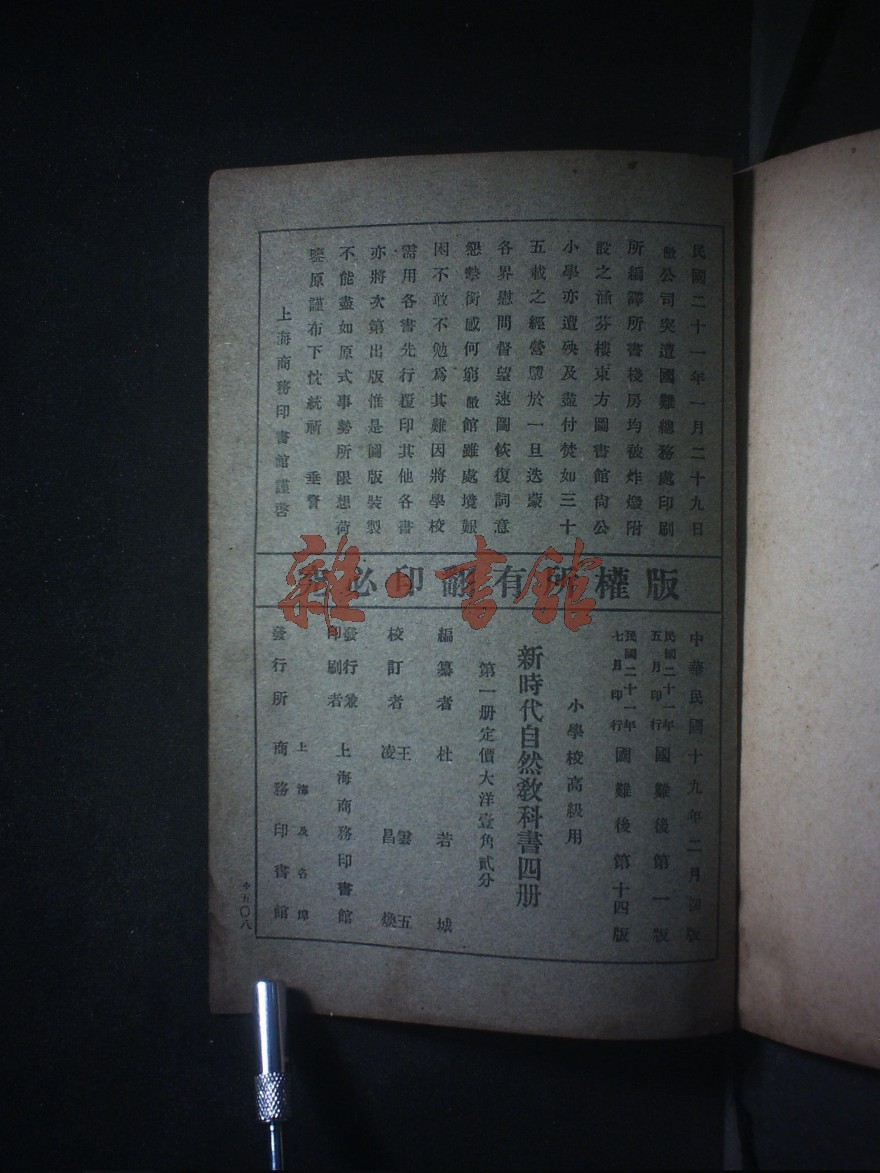 民國二十一年一月二十九日
敝公司突遭國難總務處印刷
所編譯所書棧房均被炸燬附
設之涵芬樓東方圖書館尙公
小學亦遭殃及盡付焚如三十
五載之經營隳於一旦迭蒙
各界慰問督望速圖恢復詞意
懇摯銜感何窮敝館雖處境艱
困不敢不勉爲其難因將學校
需用各書先行覆印其他各書
亦將次第出版惟是圖版裝製
不能盡如原式事勢所限想荷
鑒原謹布下忱統祈 垂詧
上海商務印書館謹啓
版權所有翻印必
雜·書館
中華民國十九年二月初版
民國二十一年五月印行 國難後第一版
民國二十一年七月印行 國難後第十四版
小學校高級用
新時代自然敎科書四册
第一册定價大洋壹角貳分
編纂者 杜若城
校訂者 王雲五 凌昌煥
發行兼印刷者 上海商務印書館
發行所 上海及各埠 商務印書館
小五〇八